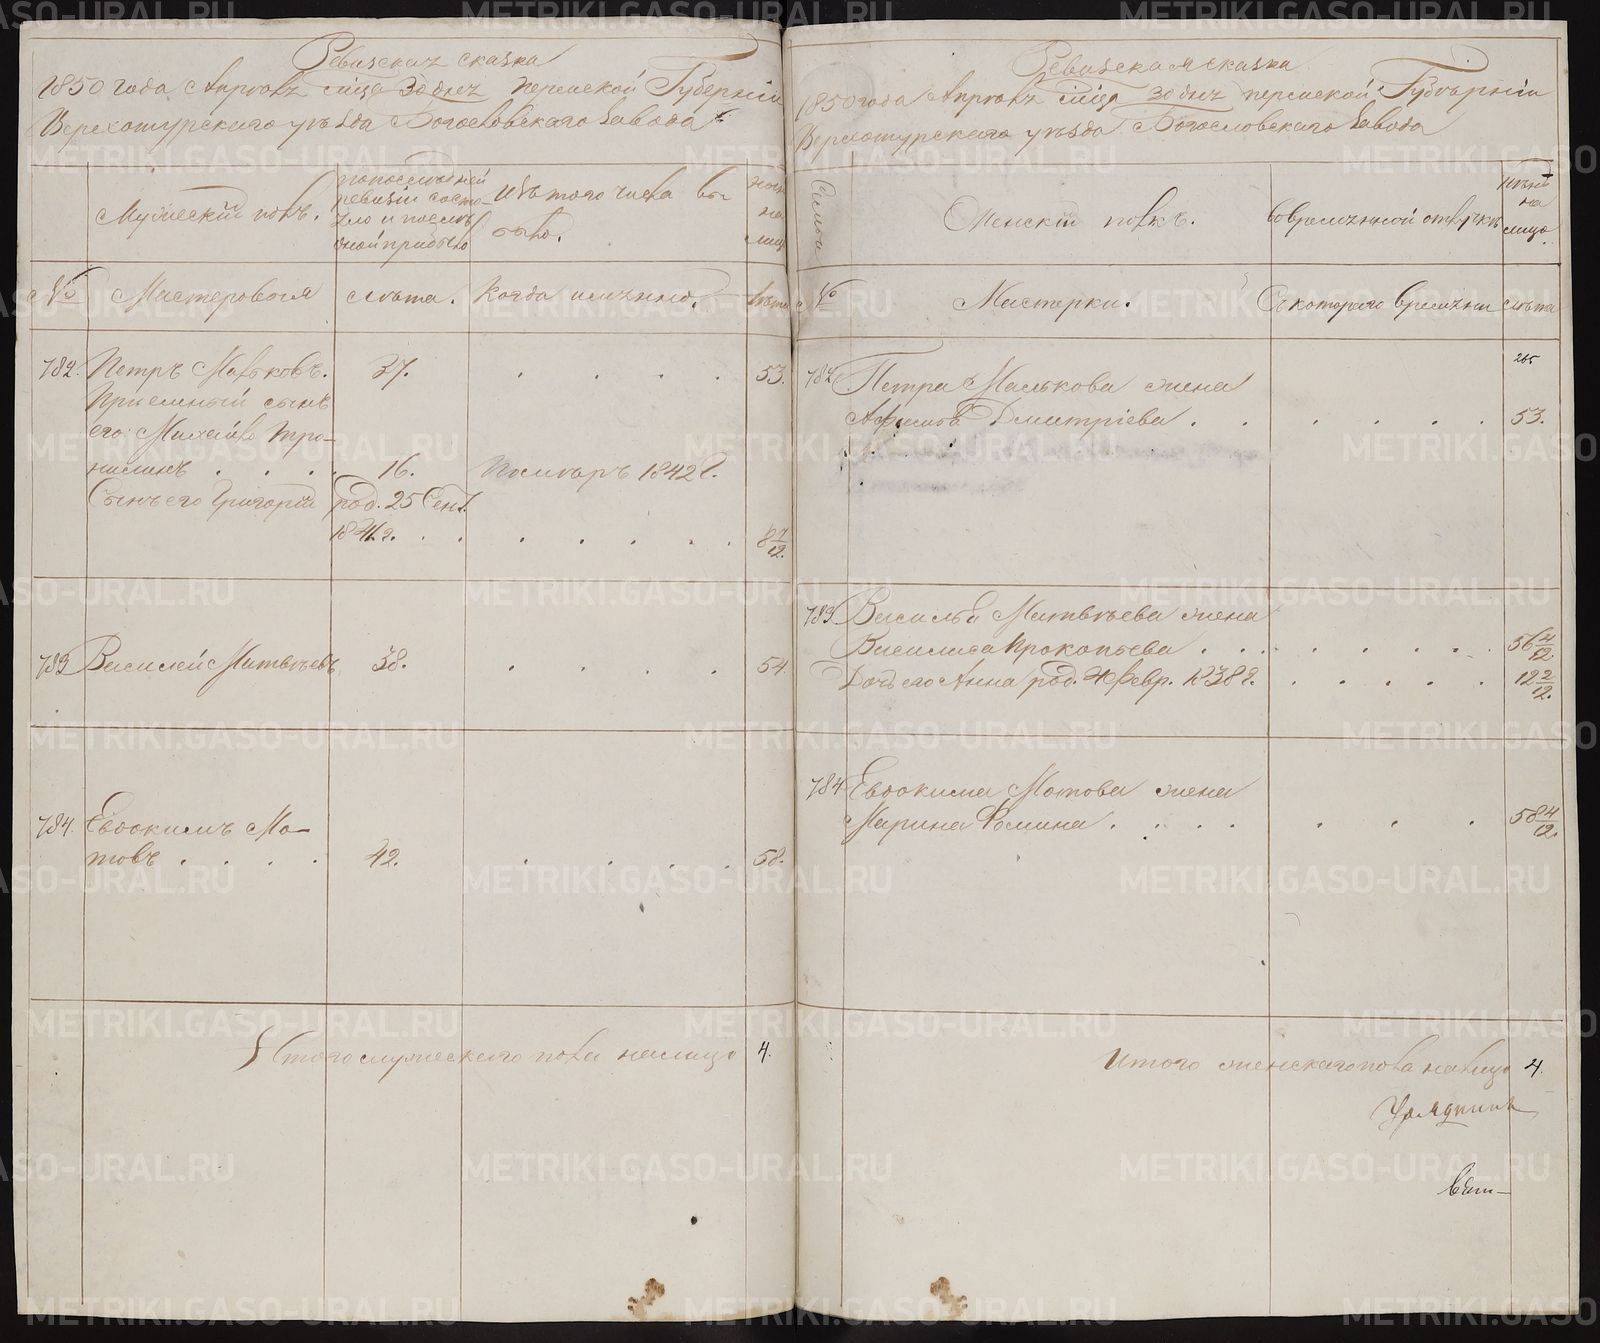 Ревизская сказка
1850 года Апреля м‍ца 30 дня Пермской Губерніи
Верхотурскаго уѣзда Богословскаго Завода
Мужескій полъ.
По последней
ревизіи состо-
яло и послѣ
оной прибыло
Изъ того числа вы-
было.
Ныне
на
лицо
№
Мастеровыя
Лѣта.
Когда именно.
Лѣта
782.
Петръ Мальковъ.
37.
53.
Пріемный сынъ
его Михайло Тро-
нилинъ
16.
Померъ 1842 г.
Сынъ его Григорій
род. 25 Сент.
1841 г.
8 7/12.
783
Василей Матвѣевъ
38.
54.
784.
Евдокимъ Мо-
товъ
42.
58.
Итого мужескаго пола на лицо
4.
Ревизская сказка
1850 года Апреля м‍ца 30 дня Пермской Губерніи
Верхотурскаго уѣзда Богословскаго Завода
Семьи
Женскій полъ.
Во временной отлучкѣ
Нынѣ
на
лицо.
№
Мастерки.
Съ котораго времени
Лѣта
265
782
Петра Малькова жена
Афимья Дмитріева
53.
783
Василья Матвѣева жена
Василиса Прокопьева
56 4/12.
Дочь его Анна род. Февр. 1838 г.
12 2/12.
784
Евдокима Мотова жена
Марина Фомина
58 4/12.
Итого женскаго пола на лицо
4.
Урядникъ
METRIKI.GASO-URAL.RU